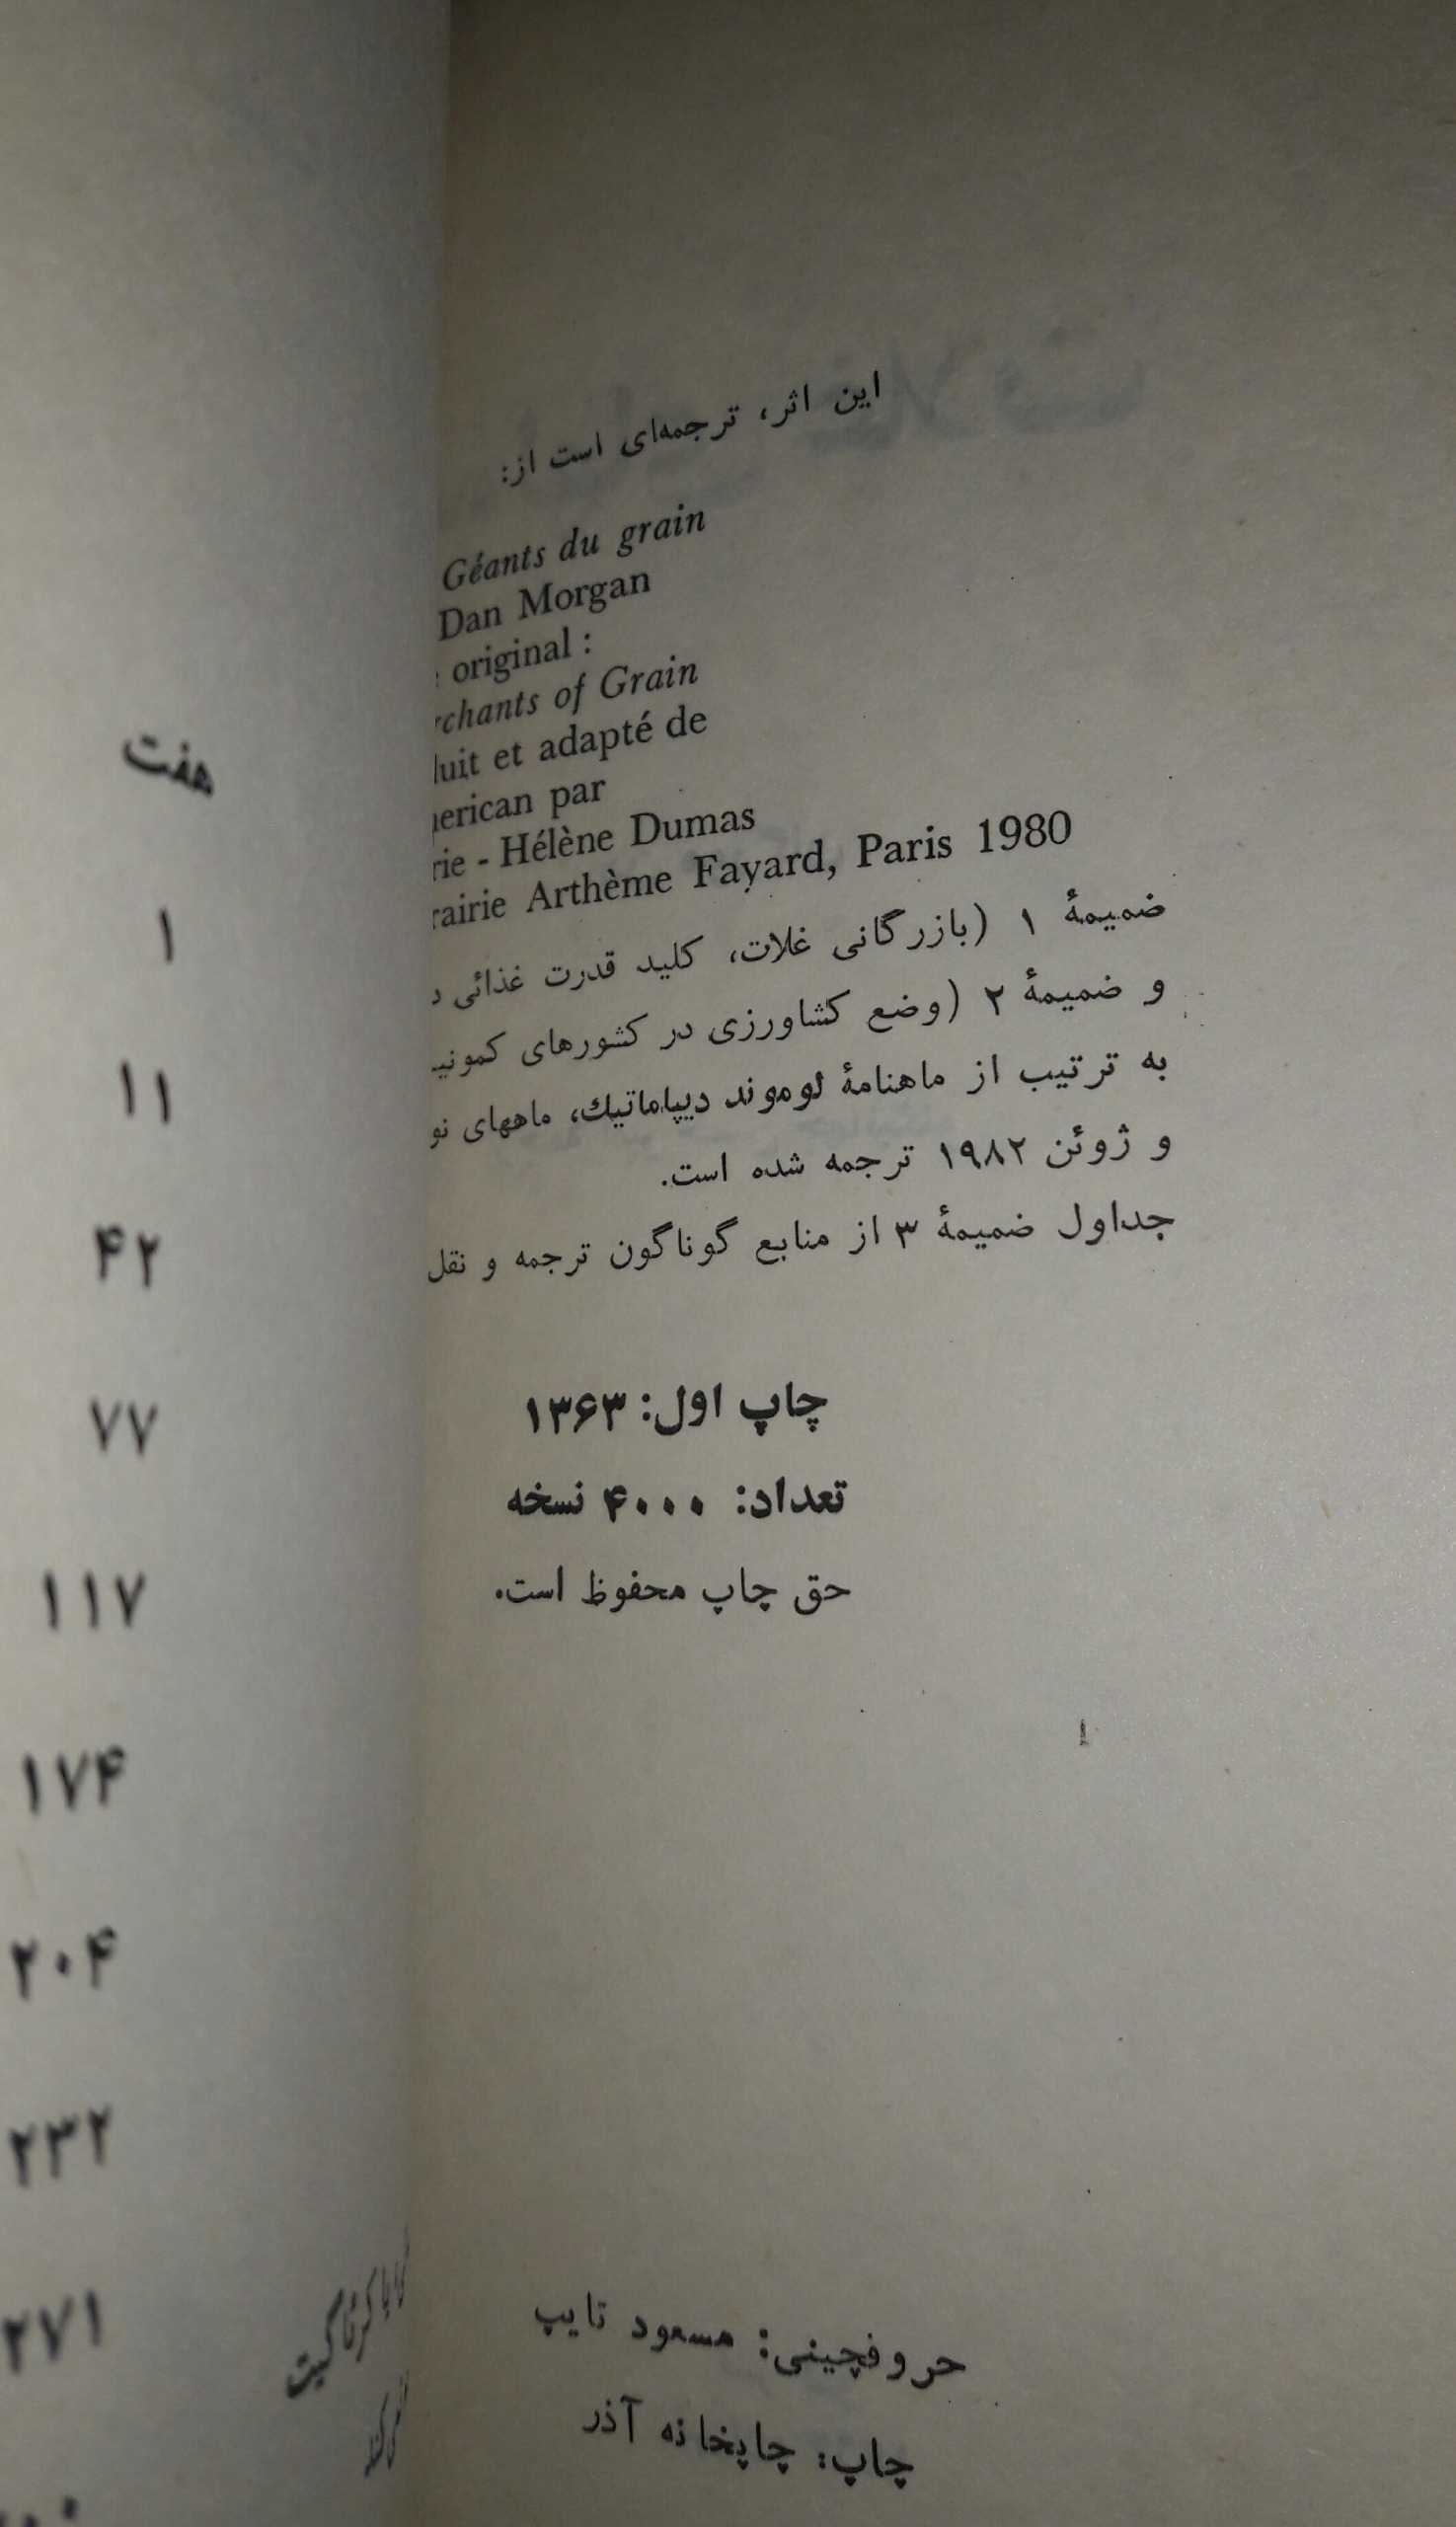 این اثر، ترجمه‌ای است از:
Géants du grain
Dan Morgan
original :
rchants of Grain
uit et adapté de
erican par
rie - Hélène Dumas
rairie Arthème Fayard, Paris 1980
ضمیمۀ ۱ (بازرگانی غلات، کلید قدرت غذائی
و ضمیمۀ ۲ (وضع کشاورزی در کشورهای کمونی
به ترتیب از ماهنامۀ لوموند دیپلماتیك، ماههای نو
و ژوئن ۱۹۸۲ ترجمه شده است.
جداول ضمیمۀ ۳ از منابع گوناگون ترجمه و نقل
چاپ اول: ۱۳۶۳
تعداد: ۴۰۰۰ نسخه
حق چاپ محفوظ است.
حروفچینی: مسعود تایپ
چاپ: چاپخانه آذر
هفت
۱
۱۱
۴۲
۷۷
۱۱۷
۱۷۴
۲۰۴
۲۳۲
۲۷۱